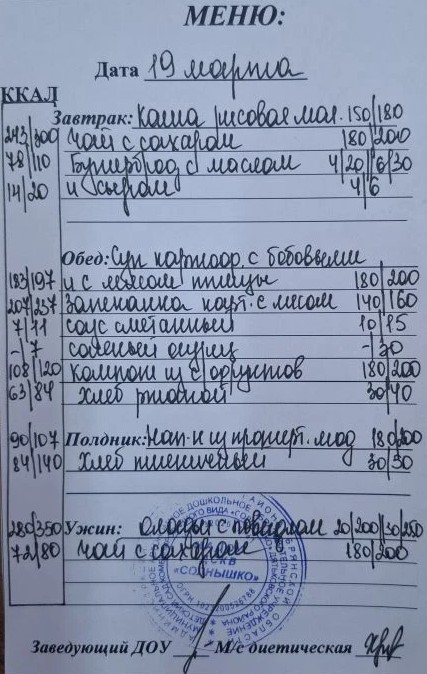 МЕНЮ:
Дата 19 марта
ККАЛ
Завтрак: Каша рисовая мол. 150/180
243/300 Чай с сахаром 180/200
78/110 Бутерброд с маслом 4/20/6/30
14/20 и сыром 4/6
Обед: Суп картоф. с бобовыми
183/197 и с мясом птицы 180/200
207/257 Запеканка карт. с мясом 140/160
7/11 соус сметанный 10/15
-/7 соленый огурец -/30
108/120 Компот из с фруктов 180/200
63/84 Хлеб ржаной 30/40
90/107 Полдник: Нап-к из 180/200
84/140 Хлеб пшеничный 30/50
280/350 Ужин: Оладьи с повидлом 20/200/30/250
72/80 Чай с сахаром 180/200
«СОЛНЫШКО»
Заведующий ДОУ М/с диетическая